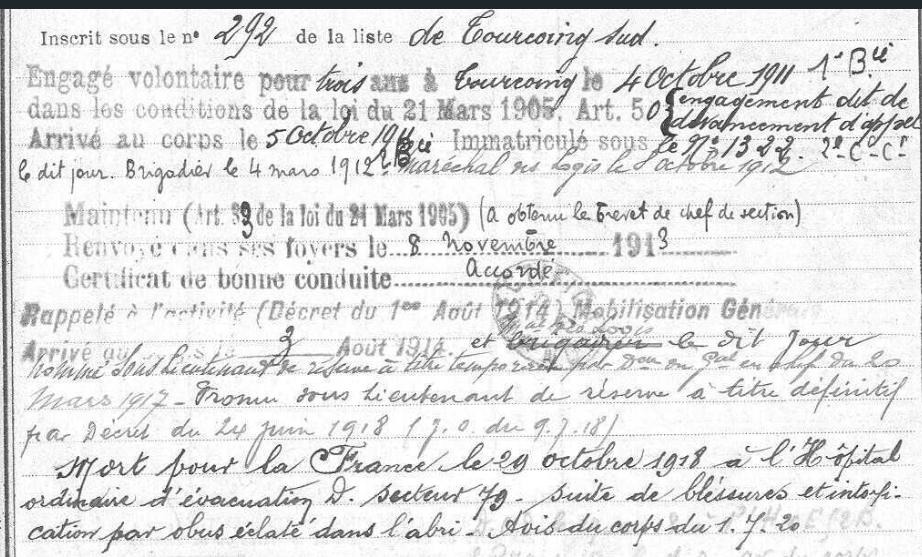 Inscrit sous le n° 292 de la liste de Tourcoing Sud.
Engagé volontaire pour trois ans à Tourcoing le 4 Octobre 1911 1e Bie
dans les conditions de la loi du 21 Mars 1905. Art. 50 {engagement dit de
devancement d'appel
Arrivé au corps le 5 Octobre 1911 Immatriculé sous le N° 1322. 2e-C-Cr
le dit jour. Brigadier le 4 mars 1912. Maréchal des logis le 8 octobre 1912
Maintenu (Art. 33 de la loi du 21 Mars 1905) (a obtenu le brevet de chef de section)
Renvoyé dans ses foyers le 8 novembre 1913
Certificat de bonne conduite Accordé
Rappelé à l'activité (Décret du 1er Août 1914) Mobilisation Générale
Arrivé au le 3 Août 1914. et brigadier le dit jour
Nommé Sous Lieutenant de réserve à titre temporaire par Don du Gal en chef du 20
Mars 1917 - Promu sous Lieutenant de réserve à titre définitif
par Décret du 24 juin 1918 (J.O. du 9.7.18)
Mort pour la France le 29 octobre 1918 à l'Hôpital
ordinaire d'évacuation D. secteur 79. suite de bléssures et intoxi-
cation par obus éclaté dans l'abri - Avis du corps du 1.7.20